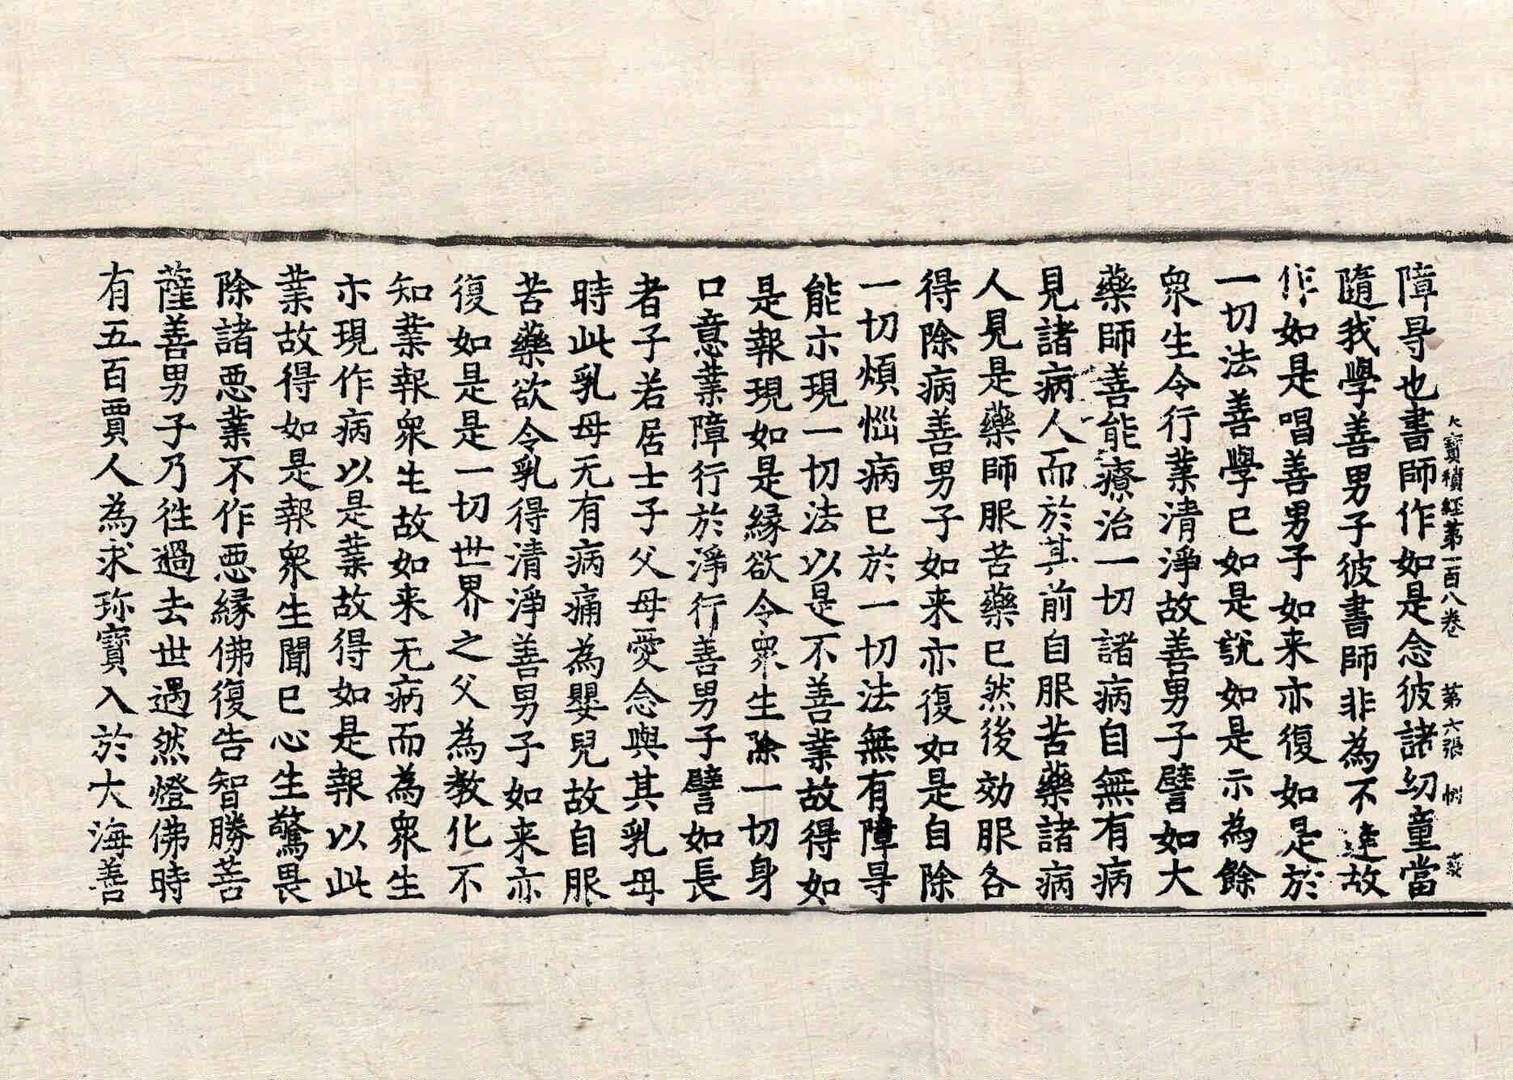 大寶積經第一百八卷 第六張
障㝵也書師作如是念彼諸幼童當
隨我學善男子彼書師非為不達故
作如是唱善男子如来亦復如是於
一切法善學已如是說如是示為餘
衆生令行業清淨故善男子譬如大
藥師善能療治一切諸病自無有病
見諸病人而於其前自服苦藥諸病
人見是藥師服苦藥已然後効服各
得除病善男子如来亦復如是自除
一切煩惱病已於一切法無有障㝵
能示現一切法以是不善業故得如
是報現如是縁欲令衆生除一切身
口意業障行於淨行善男子譬如長
者子若居士子父母愛念與其乳母
時此乳母无有病痛為嬰兒故自服
苦藥欲令乳得清淨善男子如来亦
復如是是一切世界之父為教化不
知業報衆生故如来无病而為衆生
示現作病以是業故得如是報以此
業故得如是報衆生聞已心生驚畏
除諸惡業不作惡縁佛復告智勝菩
薩善男子乃徃過去世遇然燈佛時
有五百賈人為求珎寶入於大海善